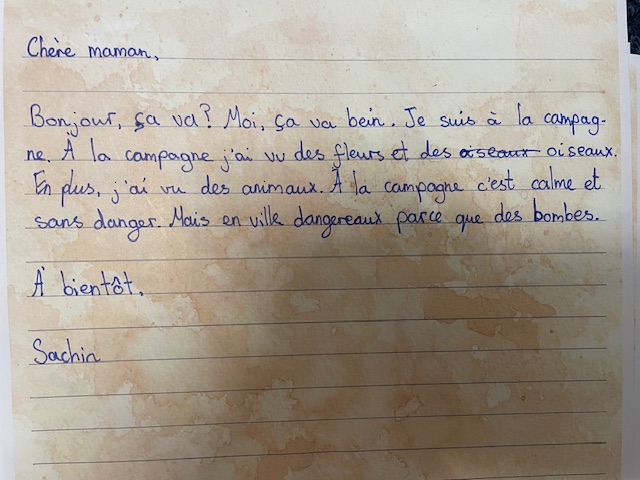 Chère maman,
Bonjour, ça va? Moi, ça va bein. Je suis à la campag-
ne. À la campagne j'ai vu des fleurs et des oiseaux oiseaux.
En plus, j'ai vu des animaux. À la campagne c'est calme et
sans danger. Mais en ville dangereaux parce que des bombes.
À bientôt,
Sachin